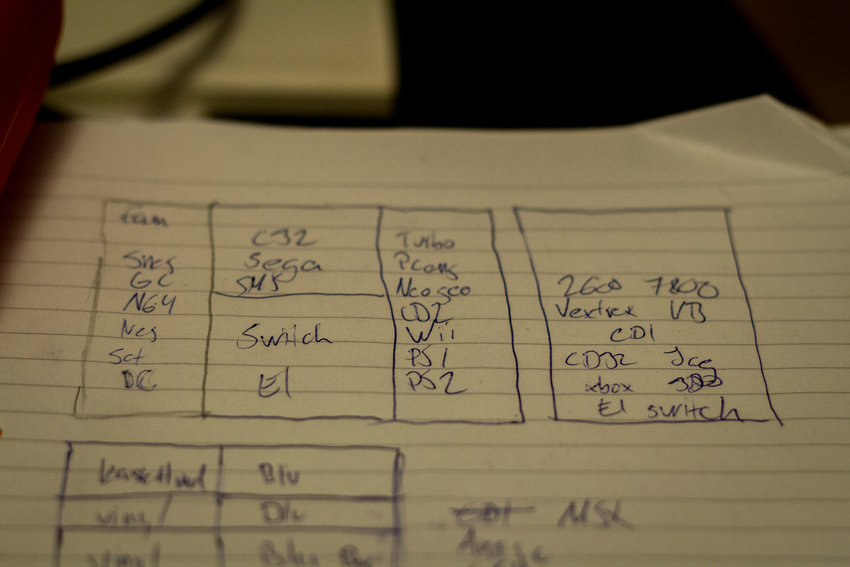 fam
Snes
GC
N64
Nes
Sat
DC
C32
Sega
SMS
Switch
El
Turbo
Pcong
Neogeo
CD2
Wii
PS1
PS2
2600 7800
Vextrex VB
CDI
CD32 Jag
xbox 3DO
El switch
Blu
vinyl
vinyl
Blu
MSX